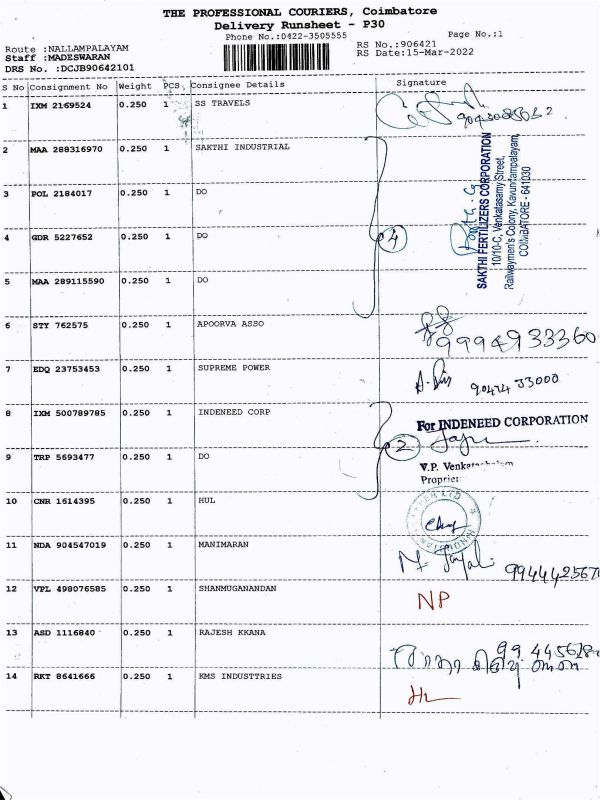 THE PROFESSIONAL COURIERS, Coimbatore
Delivery Runsheet - P30
Phone No.:0422-3505555
Page No.:1
Route :NALLAMPALAYAM
RS No.:906421
Staff :MADESWARAN
RS Date:15-Mar-2022
DRS No. :DCJB90642101
S No Consignment No Weight PCS Consignee Details Signature
1 IXM 2169524 0.250 1 SS TRAVELS
2 MAA 288316970 0.250 1 SAKTHI INDUSTRIAL
3 POL 2184017 0.250 1 DO
4 GDR 5227652 0.250 1 DO
4
SAKTHI FERTILIZERS CORPORATION
10/10-C, Venkatasamy Street,
Railwaymen's Colony, Kavundampalayam,
COIMBATORE - 641030
5 MAA 289115590 0.250 1 DO
6 STY 762575 0.250 1 APOORVA ASSO
9994933360
7 EDQ 23753453 0.250 1 SUPREME POWER
90474 33000
8 IXM 500789785 0.250 1 INDENEED CORP
For INDENEED CORPORATION
9 TRP 5693477 0.250 1 DO
2
V.P. Venkatachalam
Propriet
10 CNR 1614395 0.250 1 HUL
11 NDA 904547019 0.250 1 MANIMARAN
12 VPL 498076585 0.250 1 SHANMUGANANDAN
NP
13 ASD 1116840 0.250 1 RAJESH KKANA
14 RKT 8641666 0.250 1 KMS INDUSTTRIES